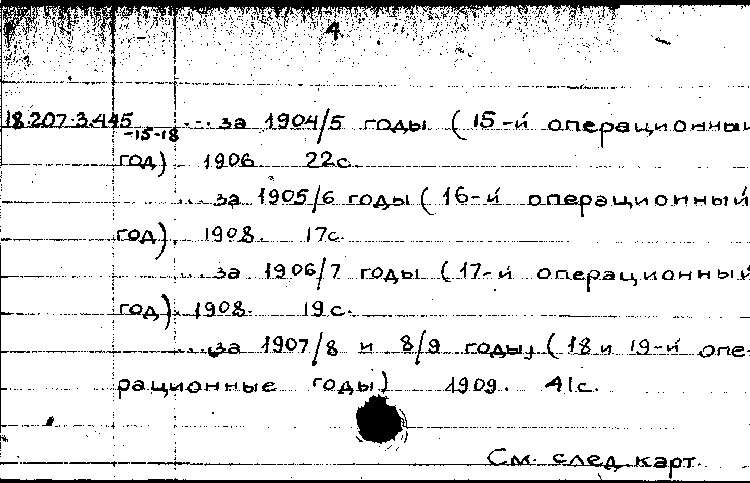 4
18.207.3.445 ... за 1904/5 годы (15-й операционный
-15-18
год). 1906. 22с.
... за 1905/6 годы (16-й операционный
год). 1908. 17с.
... за 1906/7 годы (17-й операционный
год). 1908. 19с.
... за 1907/8 и 8/9 годы, (18 и 19-й опе-
рационные годы) 1909. 41с.
См. след. карт.